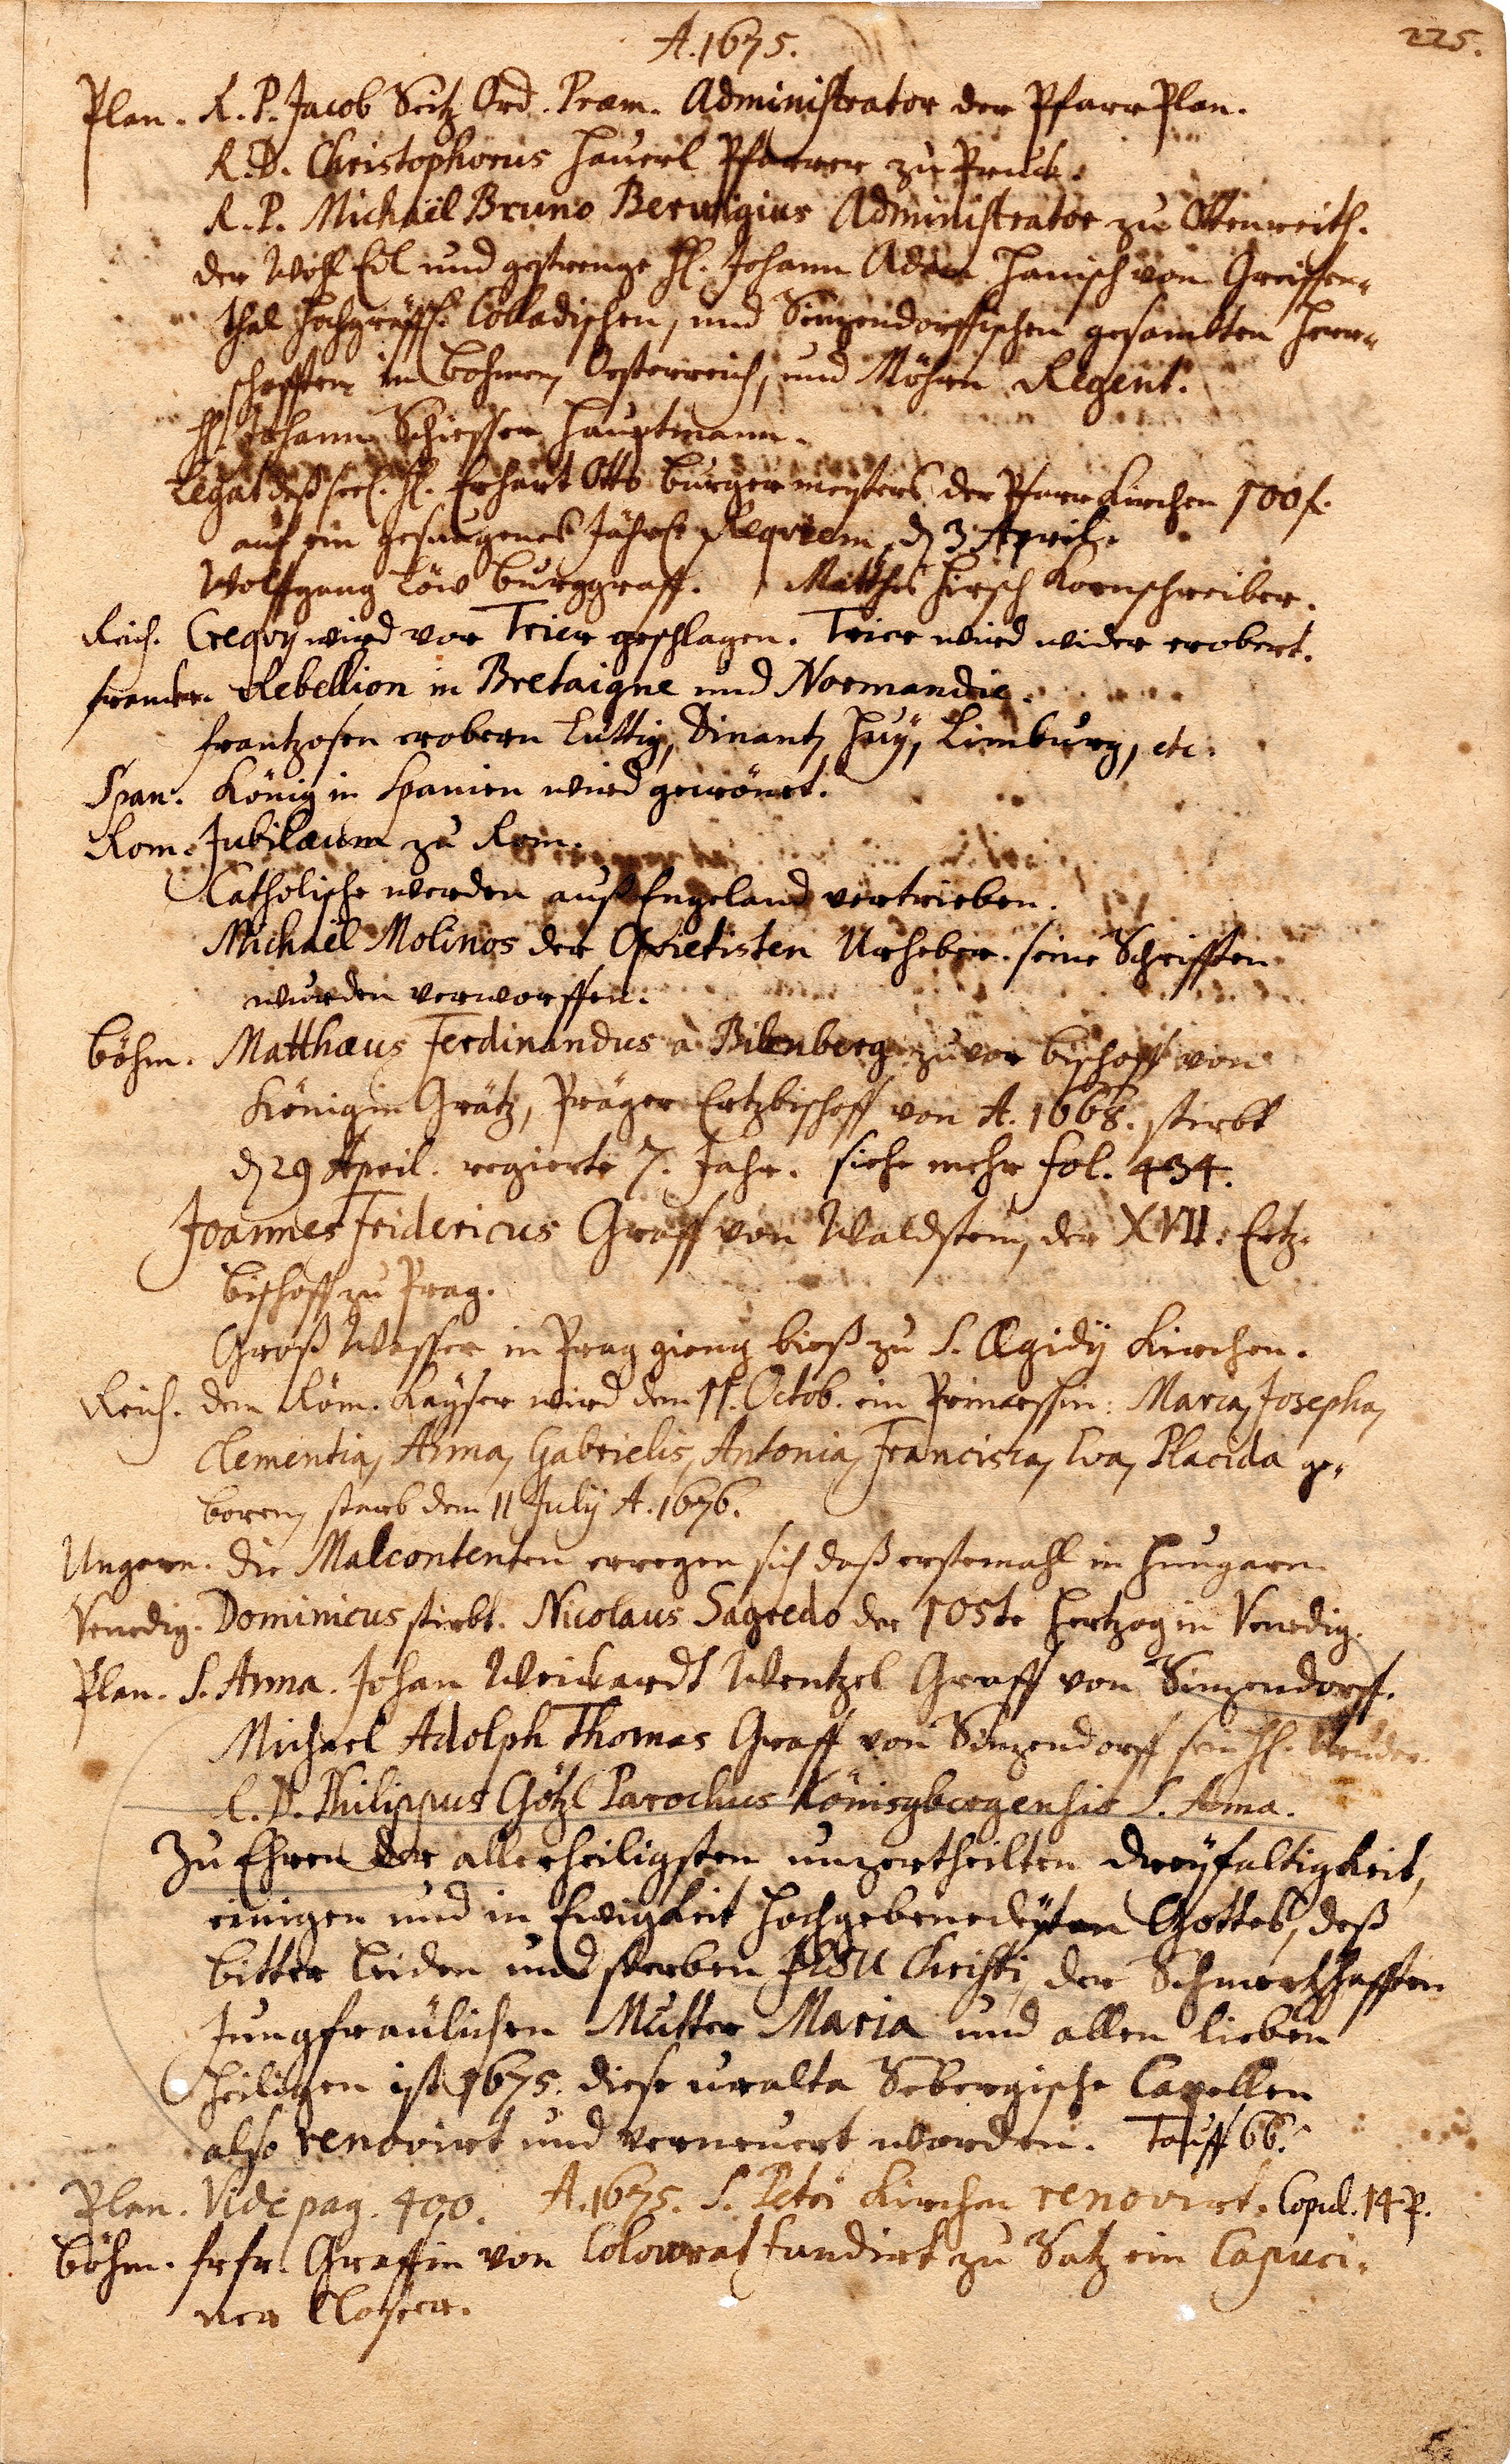 225.
A. 1675.
Plan. R. P. Jacob Seitz Ord. Præm. Administrator der Pfarr Plan.
R. D. Christophorus Hauerl Pfarrer zu Pruck.
R. P. Michaël Bruno Berwigius Administrator zu Ottenreith.
der Wohl Edl und gestrenge H. Johann Adam Hanisch von Greiffen-
thal Hochgräffl. Colladischen, und Sinzendorffischen gesambten Herr-
schafften in Böhmen, Oesterreich, und Möhrn Regent.
H. Johann Schiesser Hauptmann.
Legat deß seel. H. Erhart Otto burgermeisters der Pfarr Kirchen 100 f.
auf ein gesungenes Jährl. Requiem, d 3 April.
Wolffgang Löw burggraff. Matthes Hirsch Kornschreiber.
Reich. Creqvy wird vor Trier geschlagen. Trier wird wider erobert.
franckr. Rebellion in Bretaigne und Normandie.
frantzosen erobern Lüttig, Dinant, Huÿ, Limburg, etc.
Span. König in Spanien wird gecrönet.
Rom. Jubilæum zu Rom.
Catholische werden auß Engeland vertrieben.
Michaël Molinos der Qvietisten Urheber. seine Schrifften
wurden verworffen.
Böhm. Matthæus Ferdinandus a Bilenberg zuvor bischoff von
Königin Grätz, Präger Ertzbischoff von A. 1668. stirbt
d 29 April. regierte 7. Jahr. siehe mehr fol. 434.
Joannes Fridericus Graff von Waldstein, der XVII. Ertz-
bischoff zu Prag.
Groß Wasser in Prag gieng bieß zu S. Ægidÿ Kirchen.
Reich. dem Röm. Kayser wird den 11. Octob. ein Princessin: Maria, Josepha,
Clementia, Anna, Gabrielis, Antonia, Francisca, Eva, Placida ge-
boren, starb den 11 Julÿ A. 1676.
Ungarn. die Malcontenten erregen sich daß erstemahl in Hungarn
Venedig. Dominicus stirbt. Nicolaus Sagredo der 105te Hertzog in Venedig.
Plan. S. Anna. Johan Weickardt Wentzel Graff von Sinzendorff.
Michael Adolph Thomas Graff von Sinzendorff sein H. Bruder.
R. D. Philippus Götzl Parochus Königsbergensis S. Anna.
Zu Ehren der allerheiligsten unzertheilten dreÿfaltigkeit,
einigen und in Ewigkeit Hochgebenedeÿten Gottes, deß
bitter Leiden und sterben JESU Christi, der Schmertzhafften
Jungfraülichen Mutter Maria und allen lieben
Heiligen ist 1675. diese uralte Sebergische Capellen
also renovirt und verneuert worden. Tauff 66.
Plan. Vide pag. 400. A. 1675. S. Petri Kirchen renovirt. Copul. 14 P.
Böhm. fr. fr. Graffin von Colowrat fundirt zu Satz ein Capuci-
ner Closter.